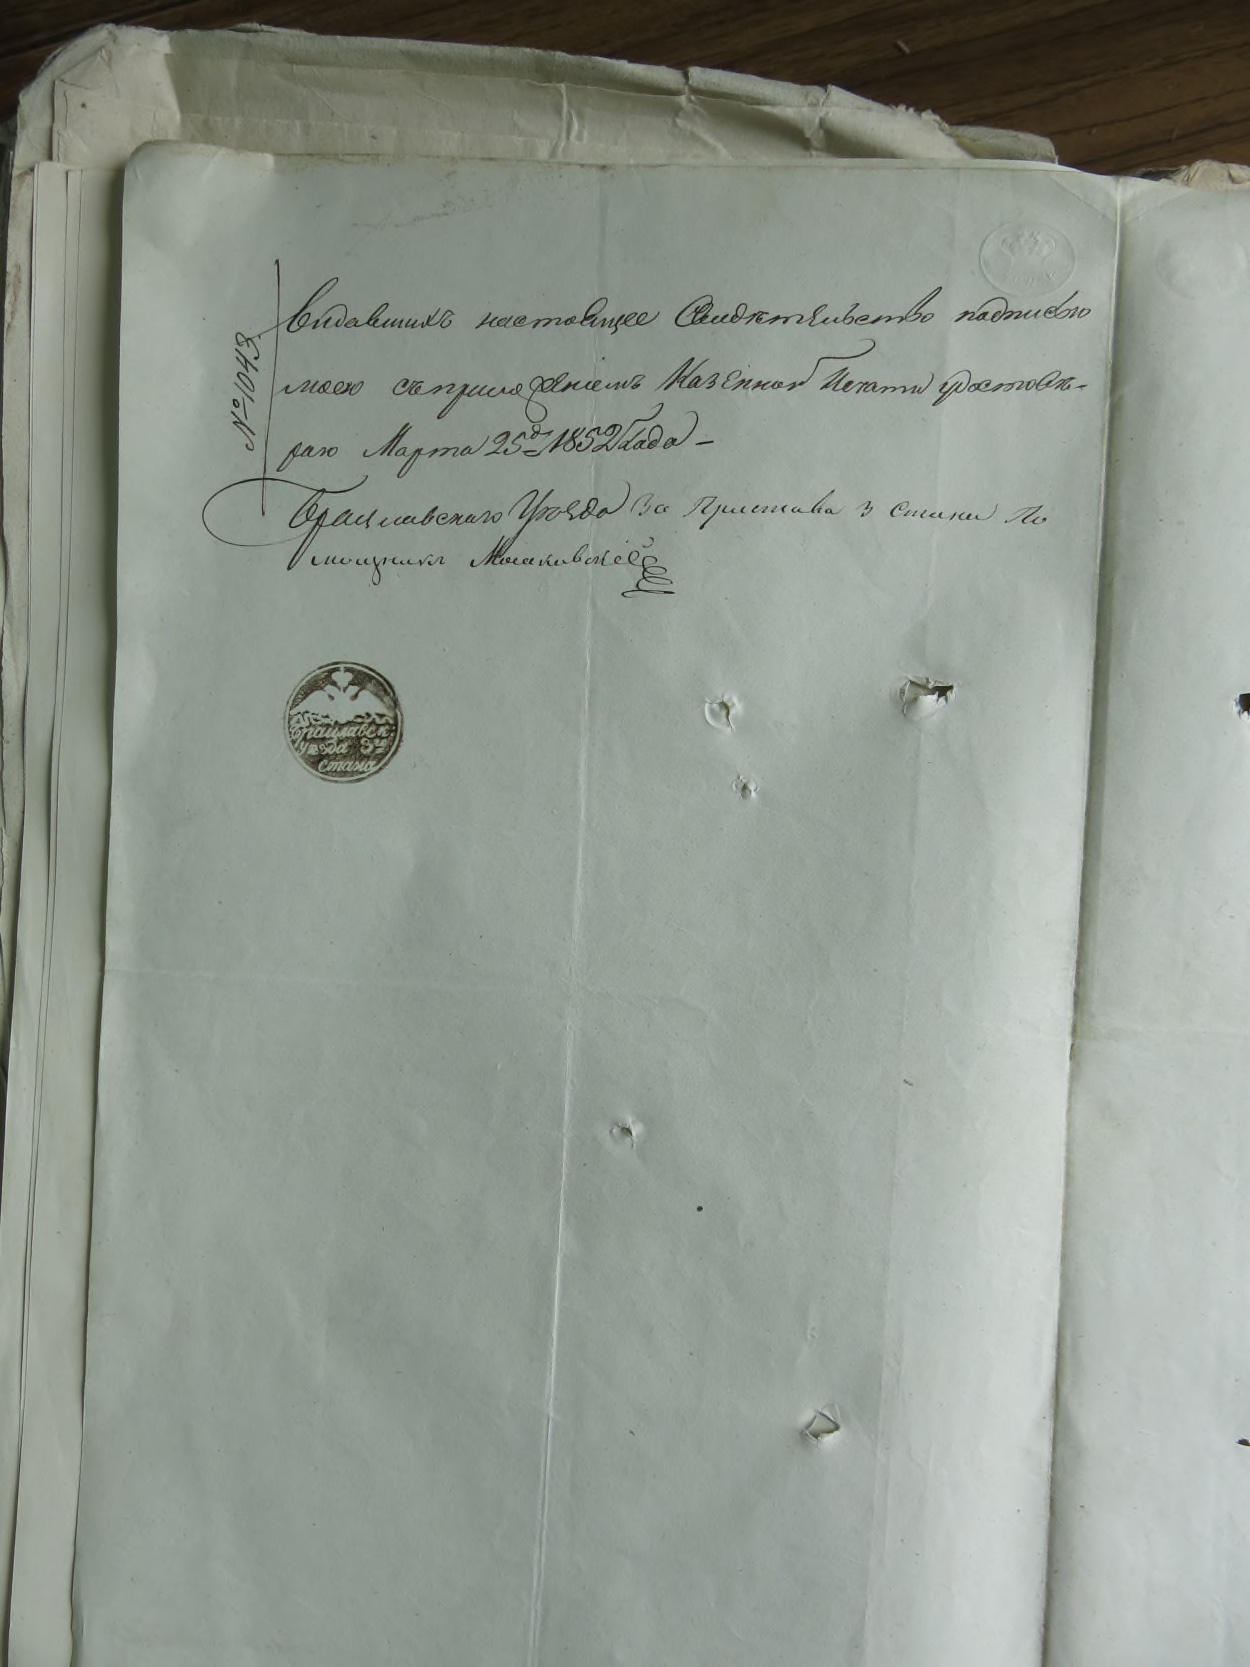 № 1043
видавшихъ настоящее Свидѣтельство подписью
моею съприложениемъ Казенной Печати удостовѣ-
раю Марта 25 д. 1852 Года –
Брацлавскаго Уѣзда За Пристава 3 Стана По
мощникъ
Брацлавск.
Уѣзда 3го
Стана